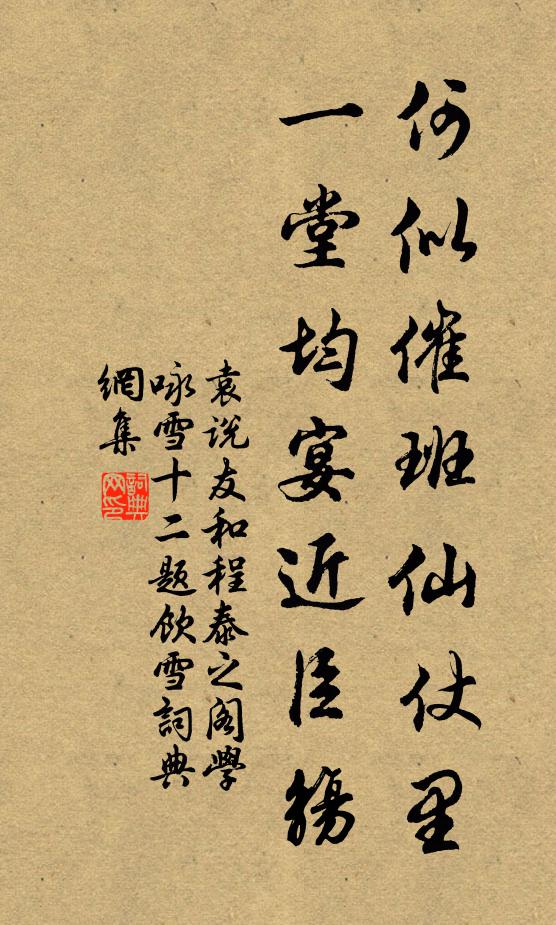 何似催班仙仗里
一堂均宴近臣觴
袁说友和程泰之阁學
咏雪十二题飲雪詞典
網集
詞典網印